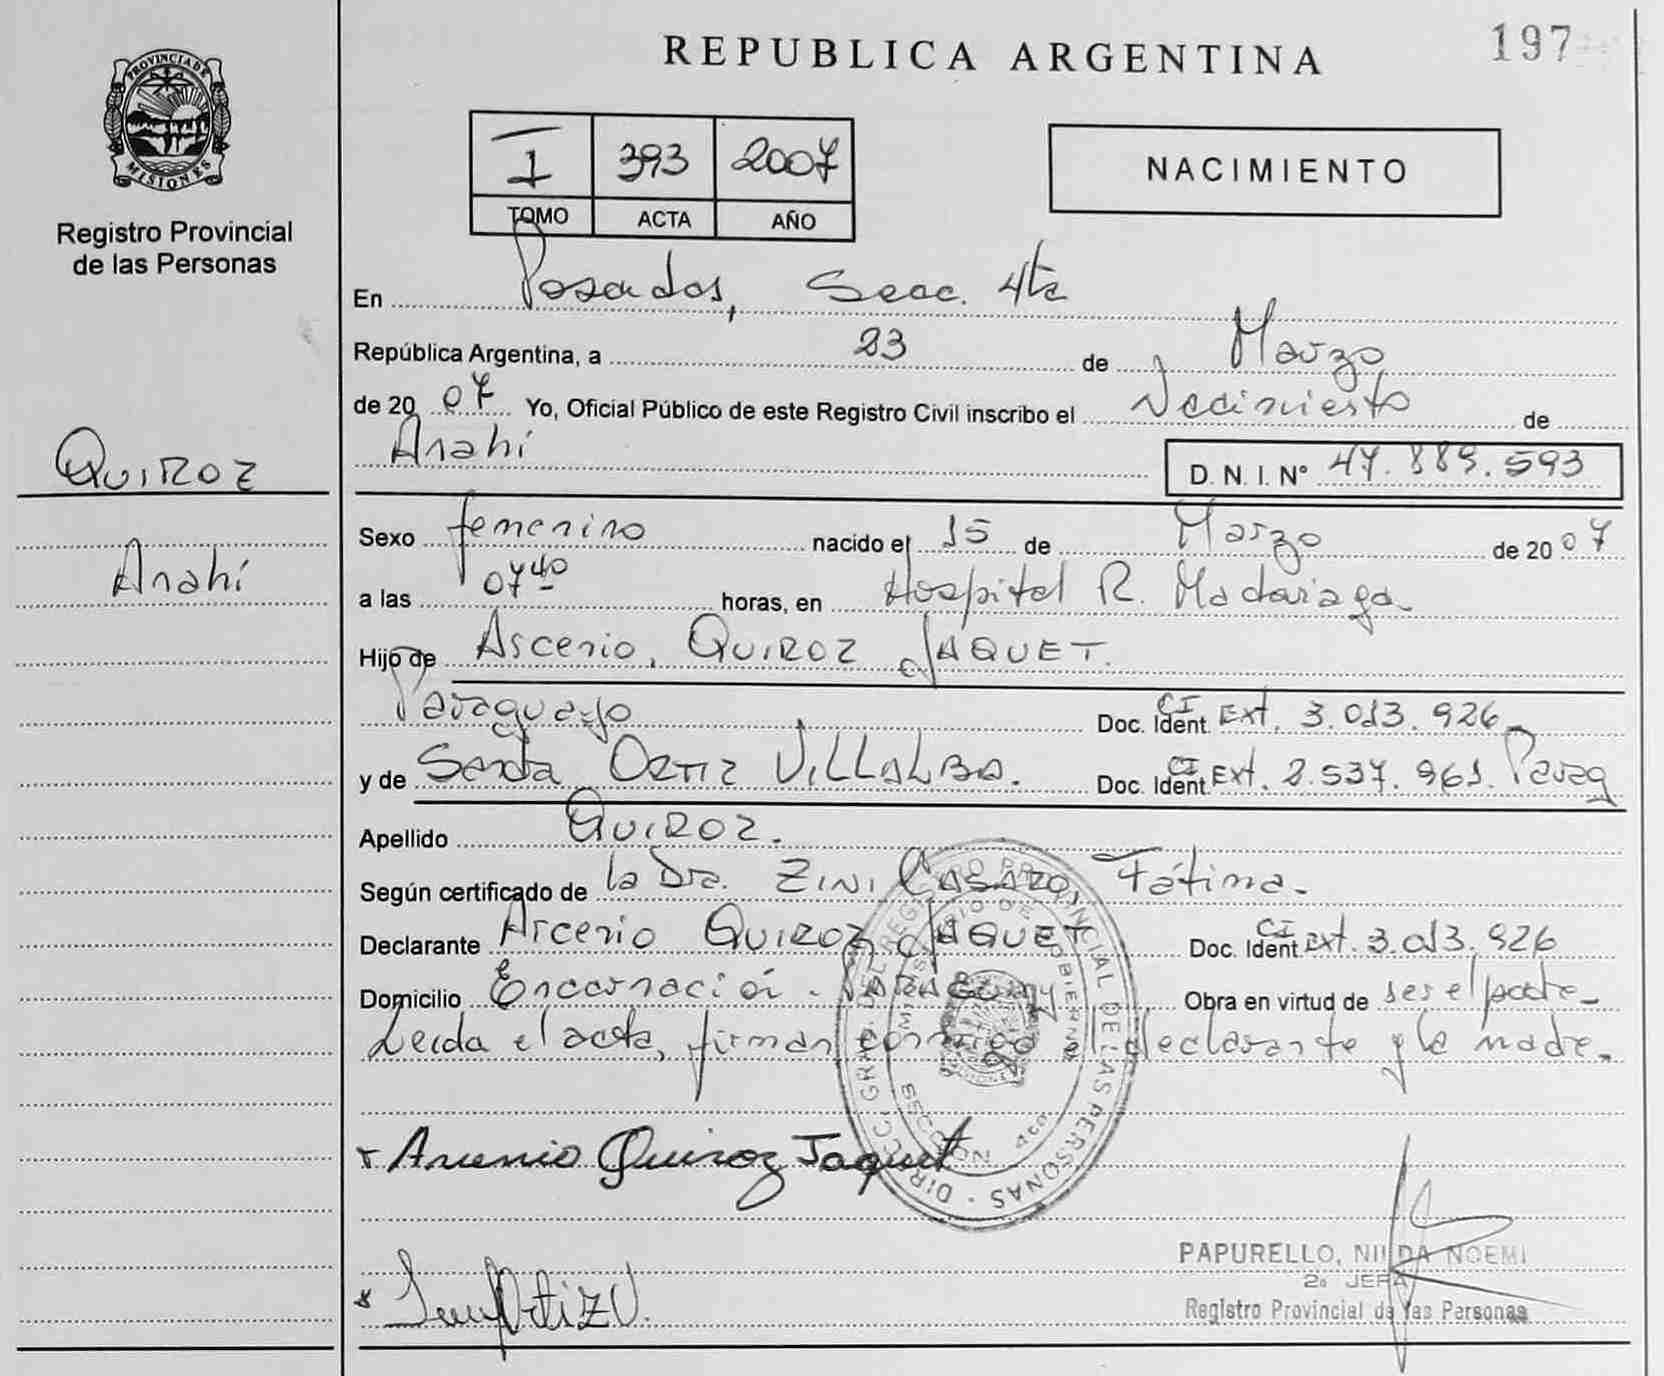 PROVINCIA DE
MISIONES
Registro Provincial
de las Personas
QUIROZ
Anahí
REPUBLICA ARGENTINA
197
I 393 2007
TOMO ACTA AÑO
NACIMIENTO
En Posadas, Secc. 4ta
República Argentina, a 23 de Marzo
de 2007 Yo, Oficial Público de este Registro Civil inscribo el Nacimiento de
Anahí D. N. I. N° 47.889.593
Sexo femenino nacido el 15 de Marzo de 2007
a las 07 40 horas, en Hospital R. Madariaga
Hijo de Ascenio, QUIROZ JAQUET.
Paraguayo Doc. Ident. CI Ext. 3.013.926
y de ORTIZ VILLALBA. Doc. Ident. CI Ext. 2.537.961. Parag
Apellido QUIROZ.
Según certificado de la Dra. ZINI CASARO, Fátima.
Declarante Arcenio QUIROZ JAQUET Doc. Ident. CI Ext. 3.013.926
Domicilio Encarnación - PARAGUAY Obra en virtud de ser el padre_
Leída el acta, firman conmigo el declarante y la madre.
DIRECC. GRAL. DEL REGISTRO PROVINCIAL DE LAS PERSONAS
MINISTERIO DE GOBIERNO
SECCION 4ta
Arsenio Quiroz Jaquet
Ortiz V.
PAPURELLO, NILDA NOEMI
2a JEFA
Registro Provincial de las Personas